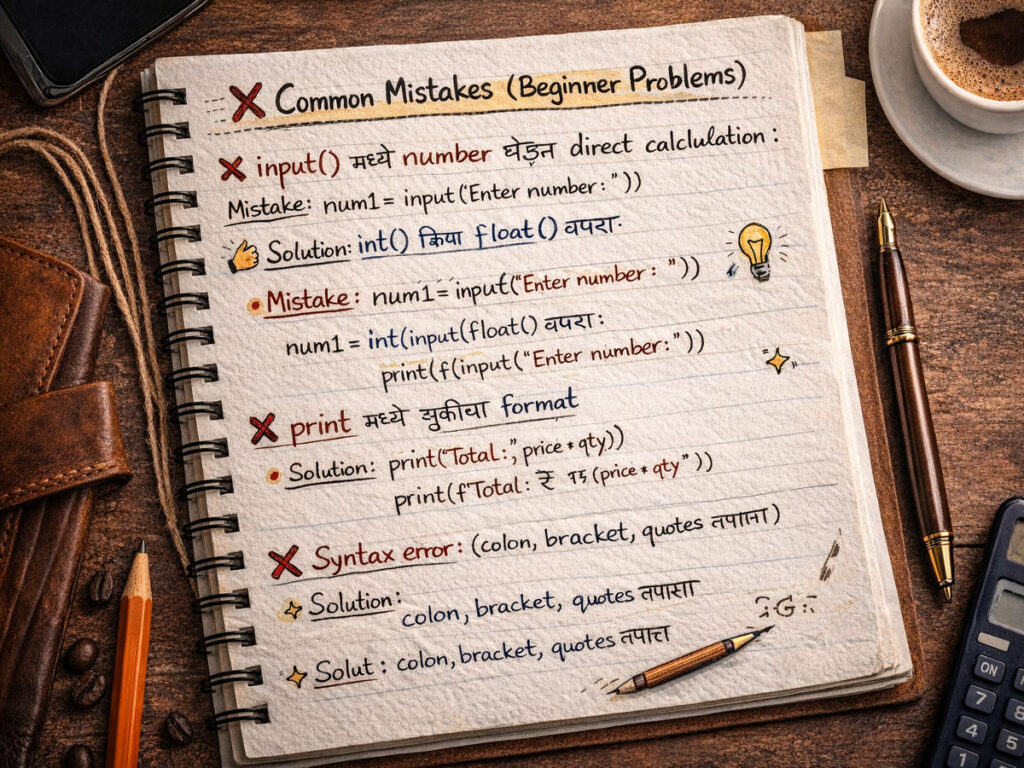 Common Mistakes (Beginner Problems)
input() मध्ये number घेड़न direct calclulation :
Mistake: num1 = input ("Enter number:" ))
Solution: int() किंवा float() वापरा.
Mistake: num1 = input("Enter number: "))
num1 = int(input(float() वापरा:
print(f(input("Enter number:"))
print मध्ये चुकीचा format
Solution: print("Total:", price * qty))
print(f'Total: ₹ (price * qty" ))
Syntax error: (colon, bracket, quotes तपाना)
Solution:
colon, bracket, quotes तपासा
Solut : colon, bracket, quotes तपात्त
ON
7
8
4
5
1